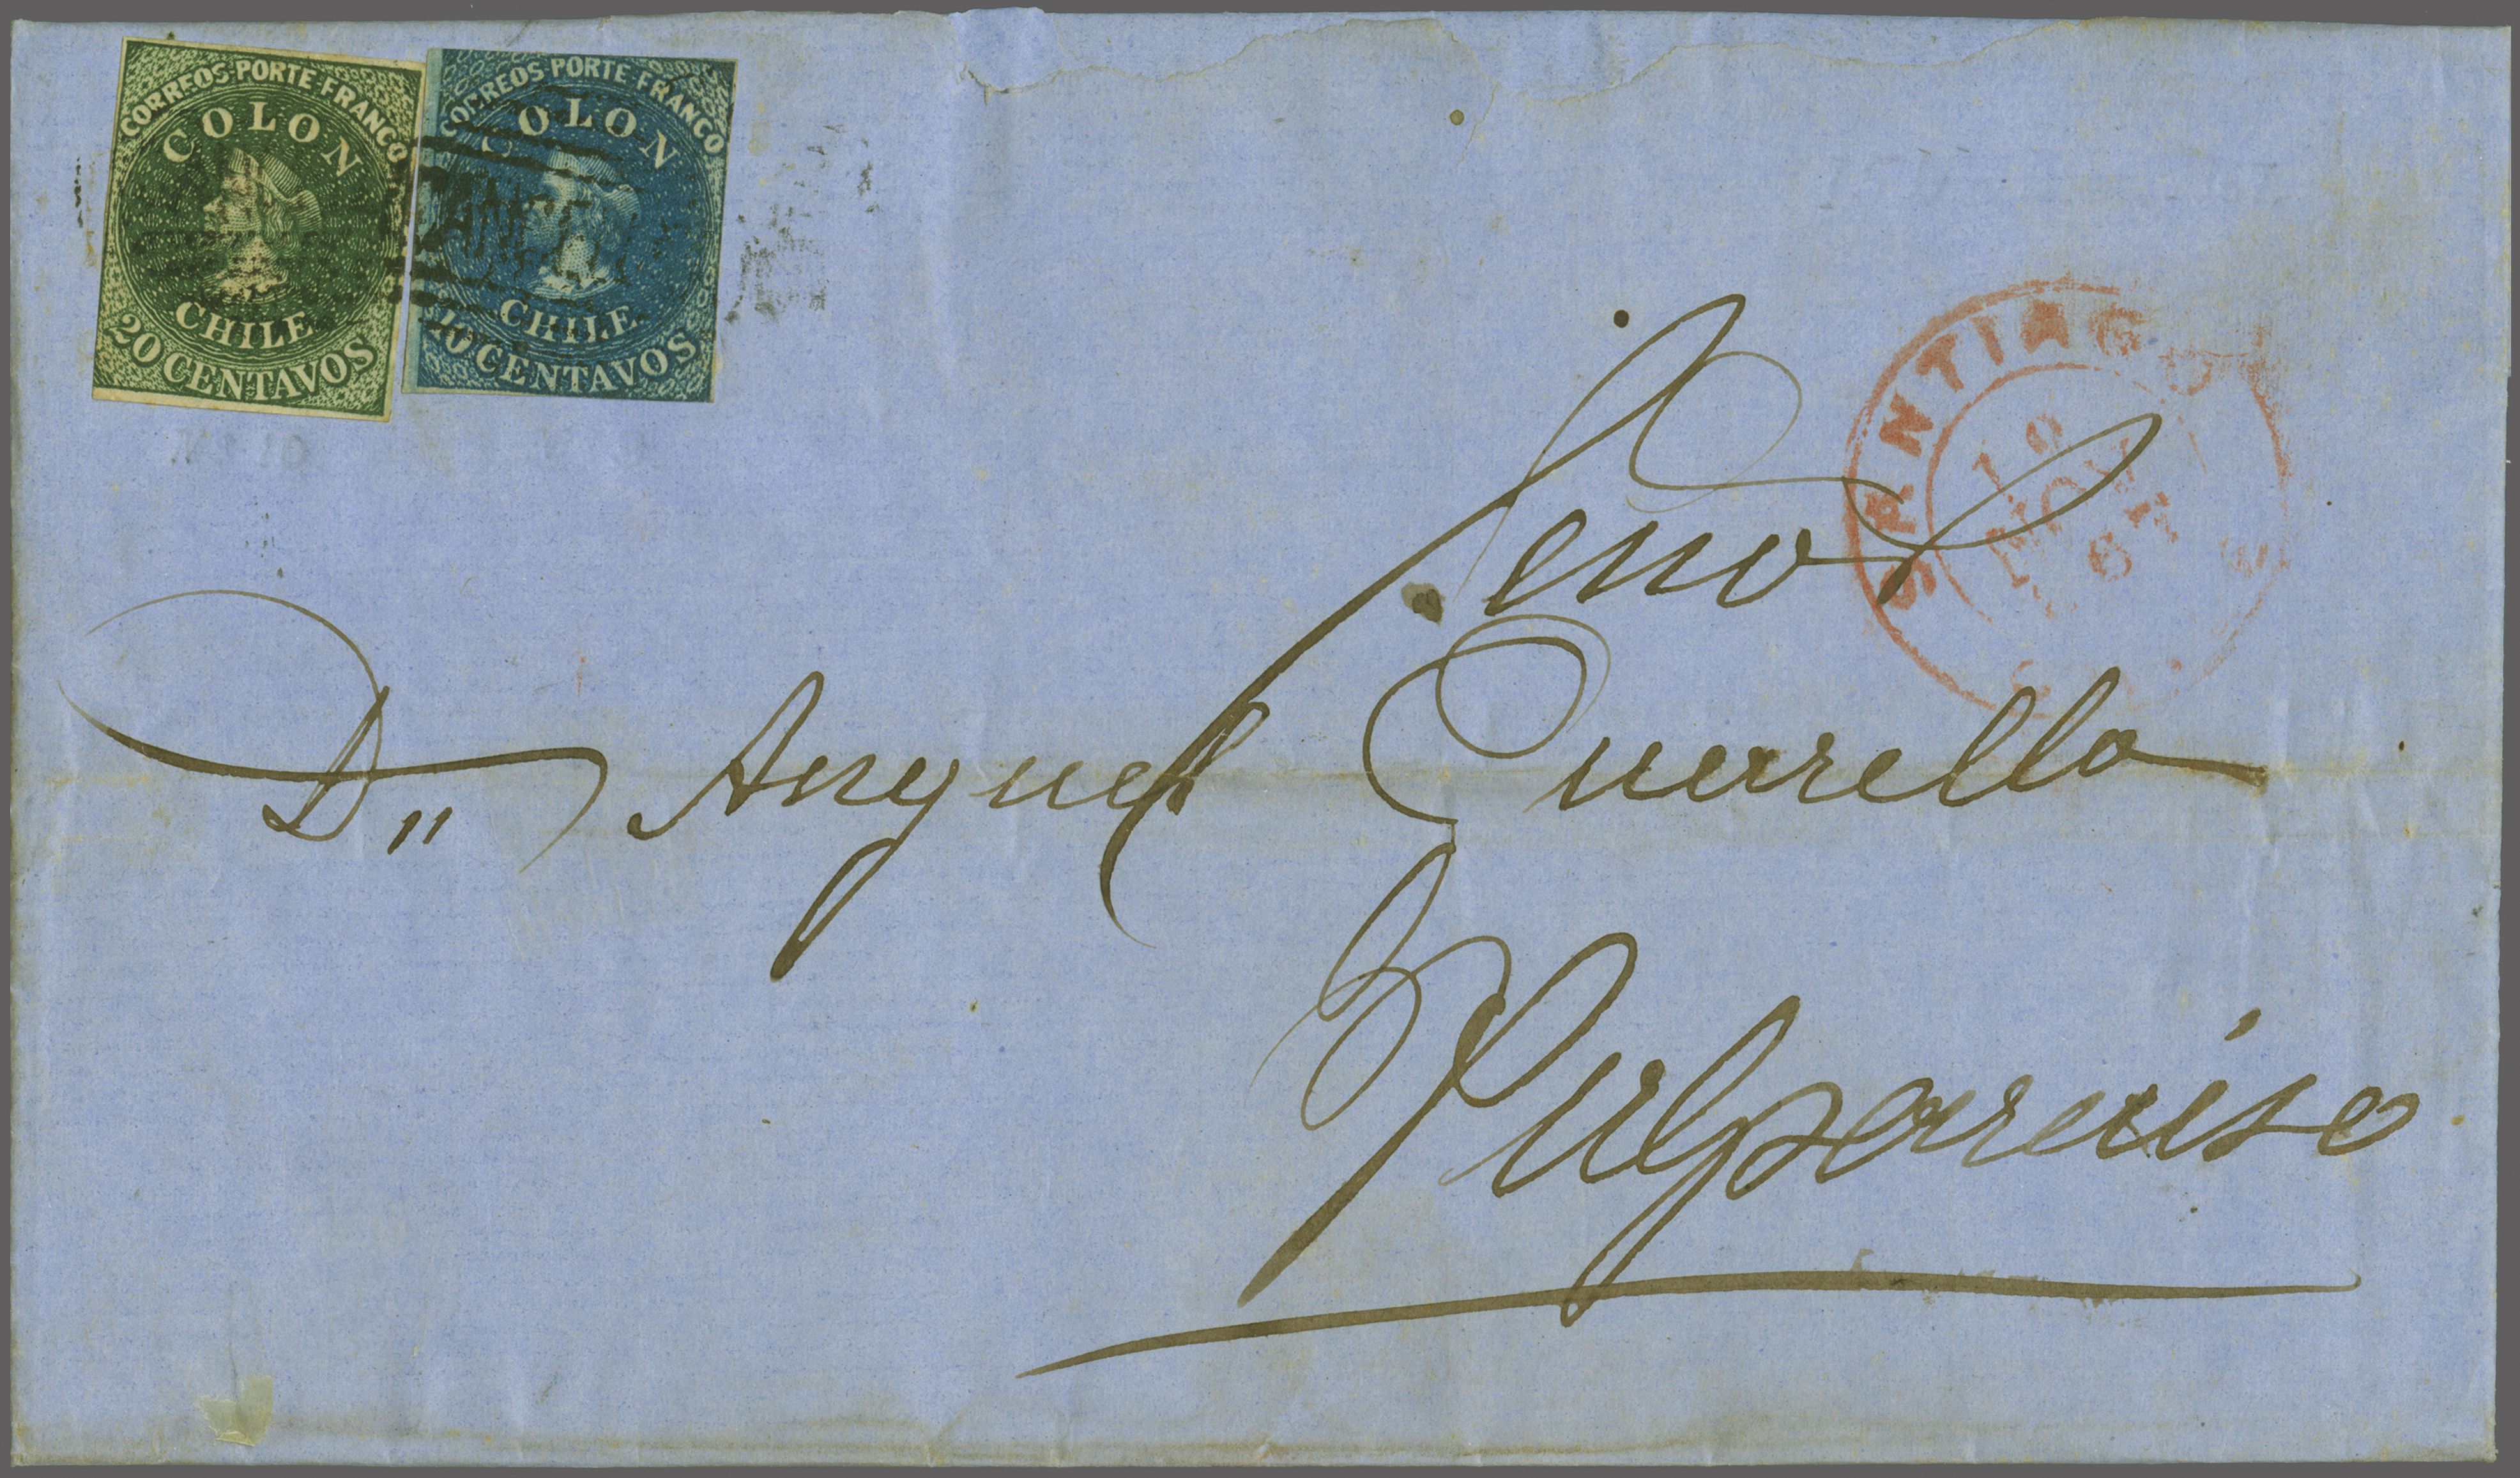 CORREOS PORTE FRANCO
COLON
CHILE
20 CENTAVOS
CORREOS PORTE FRANCO
COLON
CHILE
10 CENTAVOS
SANTIAGO
10
NOV
6
Señor
Dn Anguel Cuarello
Valparaiso